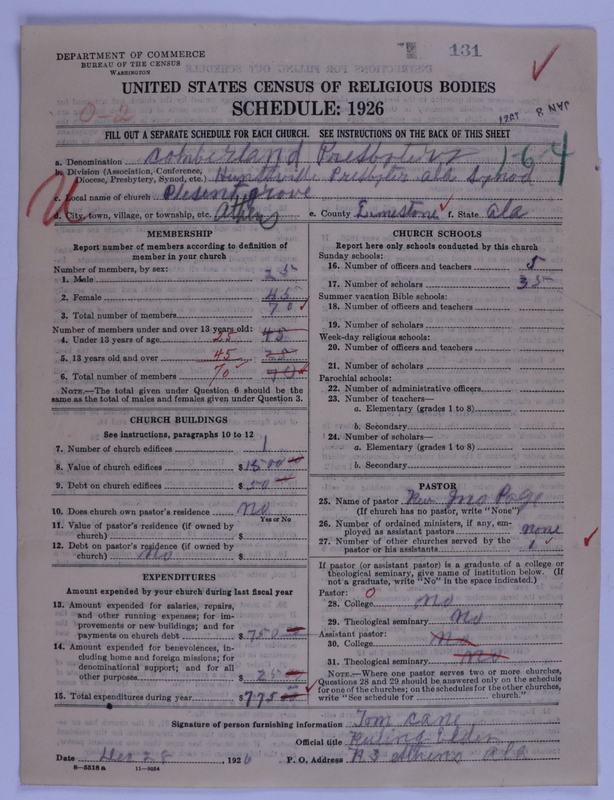 131
DEPARTMENT OF COMMERCE
BUREAU OF THE CENSUS
WASHINGTON
UNITED STATES CENSUS OF RELIGIOUS BODIES
SCHEDULE: 1926
0-2
FILL OUT A SEPARATE SCHEDULE FOR EACH CHURCH. SEE INSTRUCTIONS ON THE BACK OF THIS SHEET
164
a. Denomination Comberland Presbyters
b. Division (Association, Conference, Diocese, Presbytery, Synod, etc.) Huntsville Presbyter ala Synod
c. Local name of church Plesent grove
d. City, town, village, or township, etc. Athens e. County Limestone f. State ala
MEMBERSHIP
Report number of members according to definition of member in your church
Number of members, by sex:
1. Male 25
2. Female 45
3. Total number of members 70
Number of members under and over 13 years old:
4. Under 13 years of age 25 45
5. 13 years old and over 45 25
6. Total number of members 70 70
NOTE.—The total given under Question 6 should be the same as the total of males and females given under Question 3.
CHURCH BUILDINGS
See instructions, paragraphs 10 to 12
7. Number of church edifices 1
8. Value of church edifices $1500
9. Debt on church edifices $50
10. Does church own pastor's residence no
Yes or No
11. Value of pastor's residence (if owned by church) $
12. Debt on pastor's residence (if owned by church) no $
EXPENDITURES
Amount expended by your church during last fiscal year
13. Amount expended for salaries, repairs, and other running expenses; for improvements or new buildings; and for payments on church debt $750
14. Amount expended for benevolences, including home and foreign missions; for denominational support; and for all other purposes $25
15. Total expenditures during year $775
CHURCH SCHOOLS
Report here only schools conducted by this church
Sunday schools:
16. Number of officers and teachers 5
17. Number of scholars 35
Summer vacation Bible schools:
18. Number of officers and teachers
19. Number of scholars
Week-day religious schools:
20. Number of officers and teachers
21. Number of scholars
Parochial schools:
22. Number of administrative officers
23. Number of teachers—
a. Elementary (grades 1 to 8)
b. Secondary
24. Number of scholars—
a. Elementary (grades 1 to 8)
b. Secondary
PASTOR
25. Name of pastor Rev Jno Page
(If church has no pastor, write "None")
26. Number of ordained ministers, if any, employed as assistant pastors none
27. Number of other churches served by the pastor or his assistants 1
If pastor (or assistant pastor) is a graduate of a college or theological seminary, give name of institution below. (If not a graduate, write "No" in the space indicated.)
Pastor: 0
28. College no
29. Theological seminary No
Assistant pastor:
30. College no
31. Theological seminary no
NOTE.—Where one pastor serves two or more churches, Questions 28 and 29 should be answered only on the schedule for one of the churches; on the schedules for the other churches, write "See schedule for church."
Signature of person furnishing information Tom Cane
Official title Ruling Elder
Date Dec 28, 1926 P. O. Address R3 Athens ala
8-5518a 11-9054